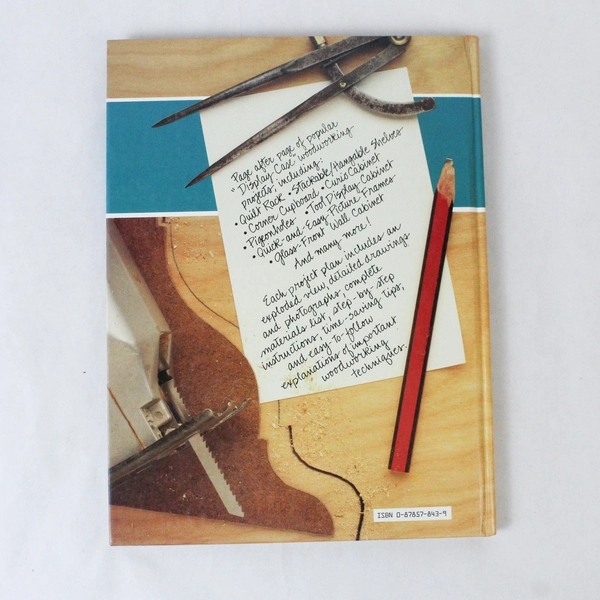 Page after page of popular
"Display-Case" woodworking
projects, including:
• Quilt Rack • Stackable/Hangable Shelves
• Corner Cupboard • Curio Cabinet
• Pigeonholes • Tool Display Cabinet
• Quick-and-Easy Picture Frames
• Glass-Front Wall Cabinet
And many more!
Each project plan includes an
exploded view, detailed drawings
and photographs, complete
materials list, step-by-step
instructions, time-saving tips,
and easy-to-follow
explanations of important
woodworking
techniques.
ISBN 0-87857-843-9